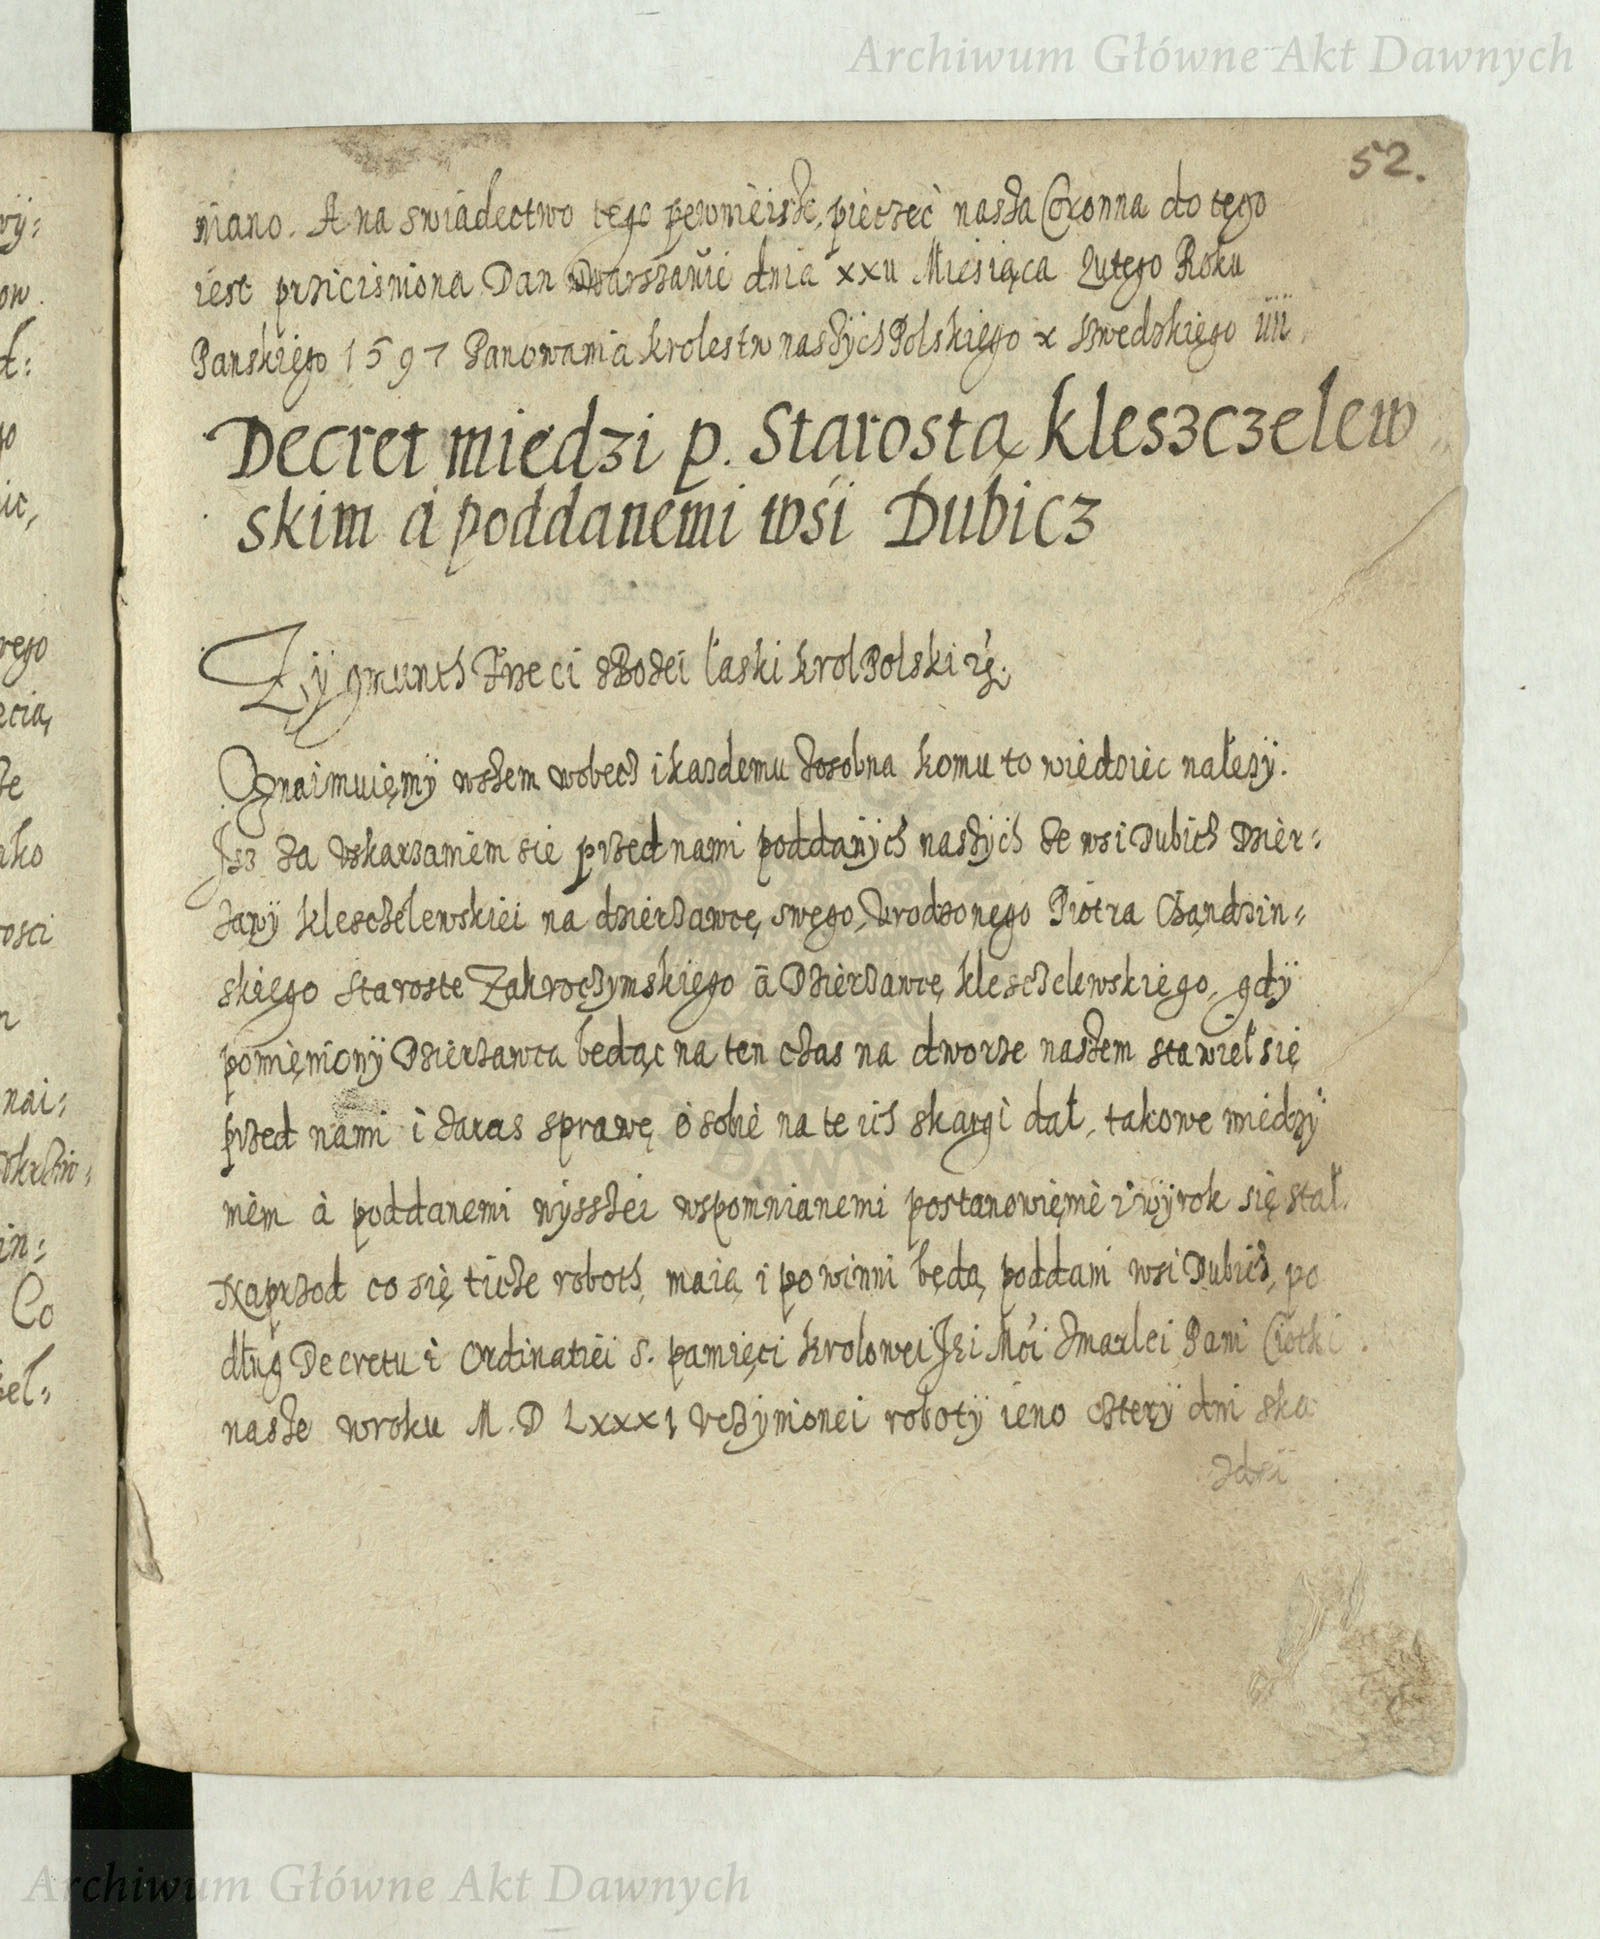 Archiwum Główne Akt Dawnych
52.
niano. A na swiadectwo tego pewnieisze, pieczeć nasza Coronna do tego
iest prziciśniona Dan Wwarszawie dnia xxv Miesiąca Lutego Roku
Panskiego 1597 Panowania krolestw naszÿch Polskiego x Szwedzkiego iiii
Decret miedzi p. Starostą kleszczelew
skim á poddanemi wśi Dubicz
Zÿgmunth Trzeci zBozei łaski krol Polski
Oznaimuięmÿ wszem wobech i kazdemu zosobna komu to wiedziec należÿ.
Jsz za vskarzaniem sie przed nami poddanÿch naszÿch ze wsi Dubich Dzier-
zawÿ kleszczelewskiei na dzierzawcę swego, Vrodzonego Piotra Chandzin-
skiego staroste Zakroczymskiego á Dzierzawcę kleszczelewskiego, gdÿ
pomięnionÿ Dzierzawca bedąc na ten czas na dworze naszem stawieł się
przed nami i zaras sprawę o sobie na te ich skargi dał, takowe miedzÿ
niem á poddanemi wÿsszei wspomnianemi postanowięnie i wÿrok się stał.
Naprzod co się ticze roboth, maią i powinni będą poddani wsi Dubich, po
dług Decretu i Ordinatiei S. pamięci krolowei Jei Mći zmarłei Pani Ciotki
nasze wroku M.D Lxxxi vczÿnionei robotÿ ieno czterÿ dni ska
zdzi
Archiwum Główne Akt Dawnych
rego
ako
rosci
nai:
in:
Co